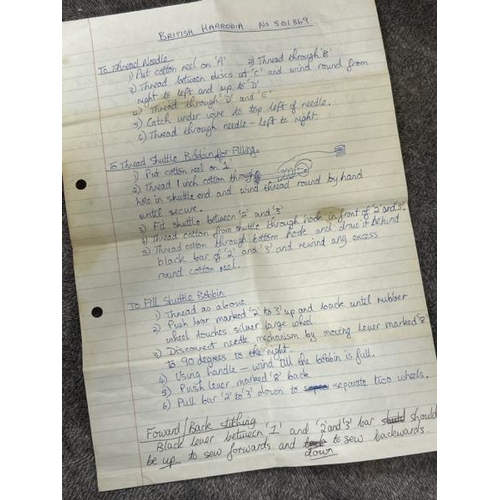 BRITISH HARRODIA No 501869
To Thread Needle
1) Put cotton reel on 'A' 2) Thread through 'B'
3) Thread between discs at 'C' and wind round from
right to left and up to 'D'
4) Thread through 'D' and 'E'
5) Catch under wire to top left of needle.
6) Thread through needle - left to right.
To Thread Shuttle Bobbin for Filling.
1) Put cotton reel on 1
2) Thread 1 inch cotton through
hole in shuttle end and wind thread round by hand
until secure.
3) Fit shuttle between '2' and '3'
4) Thread cotton from shuttle through hole in front of '2 and 3'.
5) Thread cotton through bottom hole and draw it behind
black bar of '2' and '3' and rewind any excess
round cotton reel.
To Fill Shuttle Bobbin
1) Thread as above
2) Push bar marked '2 to 3' up and back until rubber
wheel touches silver large wheel.
3) Disconnect needle mechanism by moving lever marked '8'
to 90 degrees to the right.
4) Using handle - wind till the bobbin is full.
5) Push lever marked '8' back
6) Pull bar '2 to 3' down to separate two wheels.
Foward/Back stitching
Black lever between '1' and '2 and '3' bar should
be up to sew forwards and to sew backwards
down